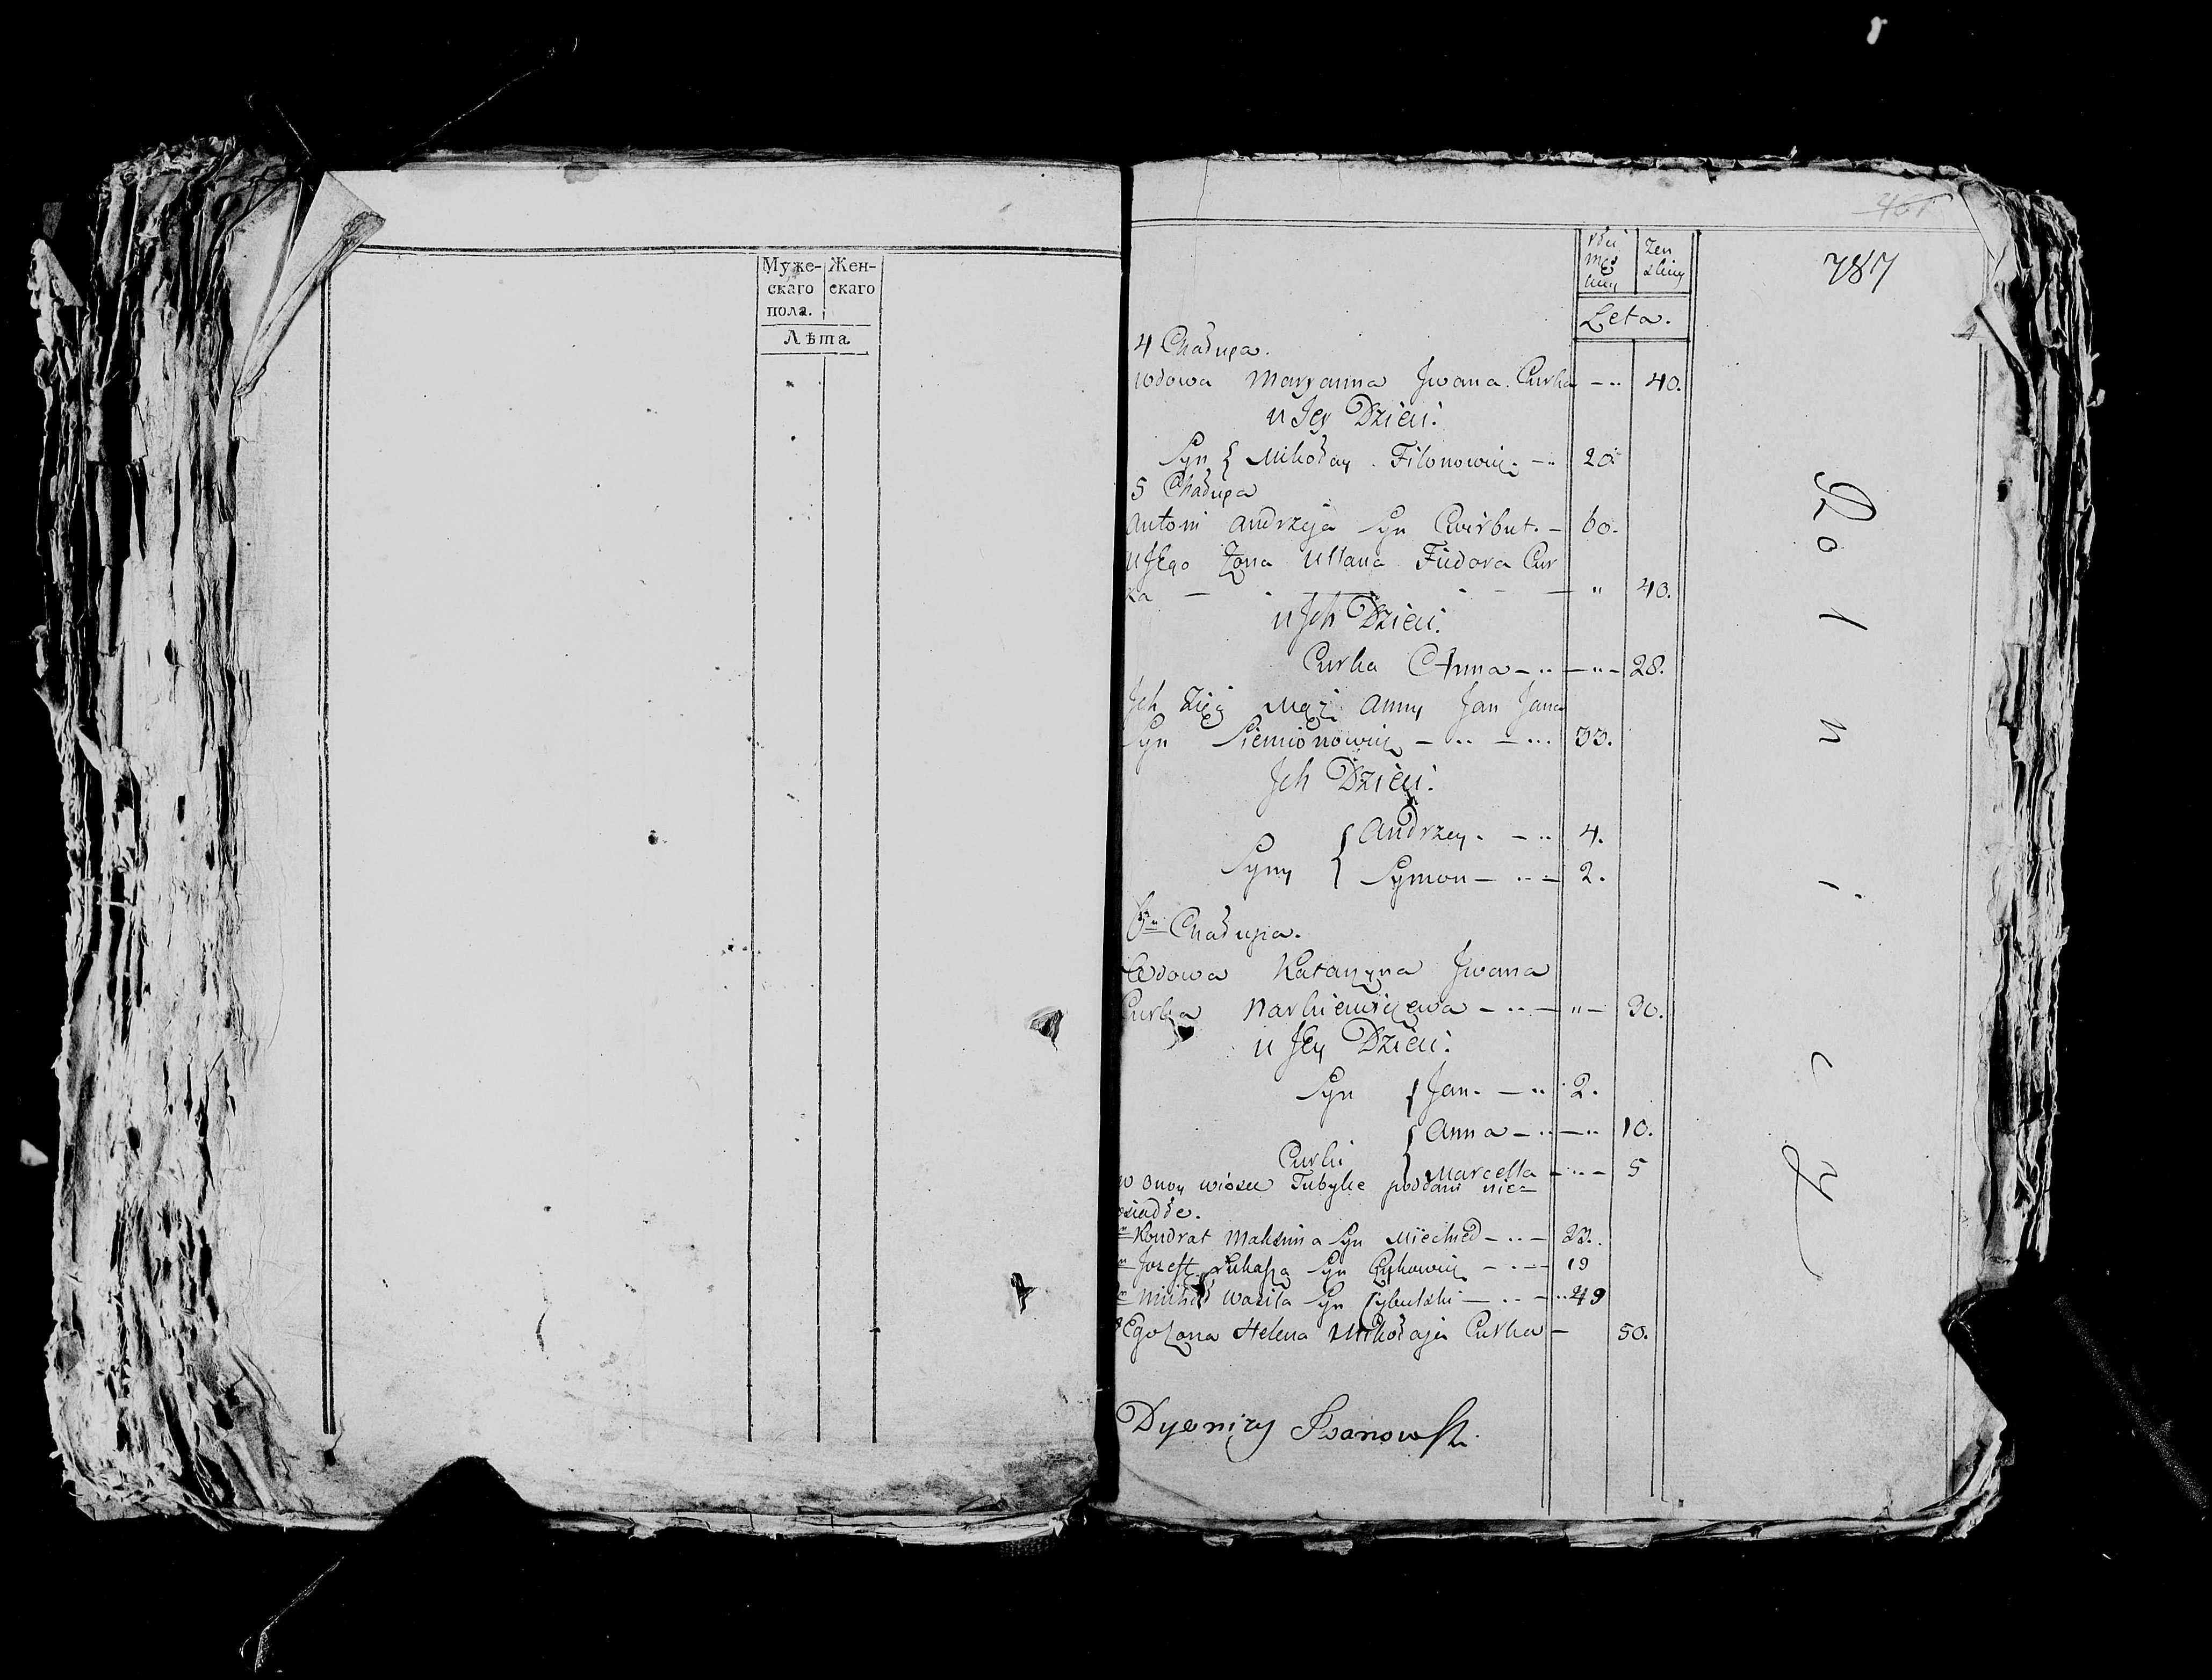 Муже- Жен-
скаго скаго
пола.
Лѣта
461
787
Zen
Leta.
4 Chałupa.
wdowa Maryanna Jwana Curka – 40.
u Jey Dzieci.
Syn { Mikołay Filonowicz – 20.
5 Chałupa
Antoni Andrzeja Syn Cwirbut. – 60.
u Jego Żona Ullana Fiudora Cur
ka – – – – " 40.
u Jch Dzieci.
Curka Anna – – " – 28.
Jch Zięć Mąż Anny Jan Jana
Syn Siemionowicz – – 33.
Jch Dzieci.
Syny { Andrzey. – 4.
Symon – – 2.
6 Chałupa.
Wdowa Katarzyna Jwana
Curka Narkiewiczewa – – " – 30.
u Jey Dzieci.
Syn { Jan. – 2.
Curki { Anna – – 10.
Marcella – – 5
w onoy wiosce poddani nie=
osiadłe.
Kondrat Maksima Syn Miechied – – 23.
Jozeft Łukasza Syn – – 19
Michał Wasila Syn Cybulski – – 49
Żona Helena Mikołaja Curka – 50.
Rolnicy